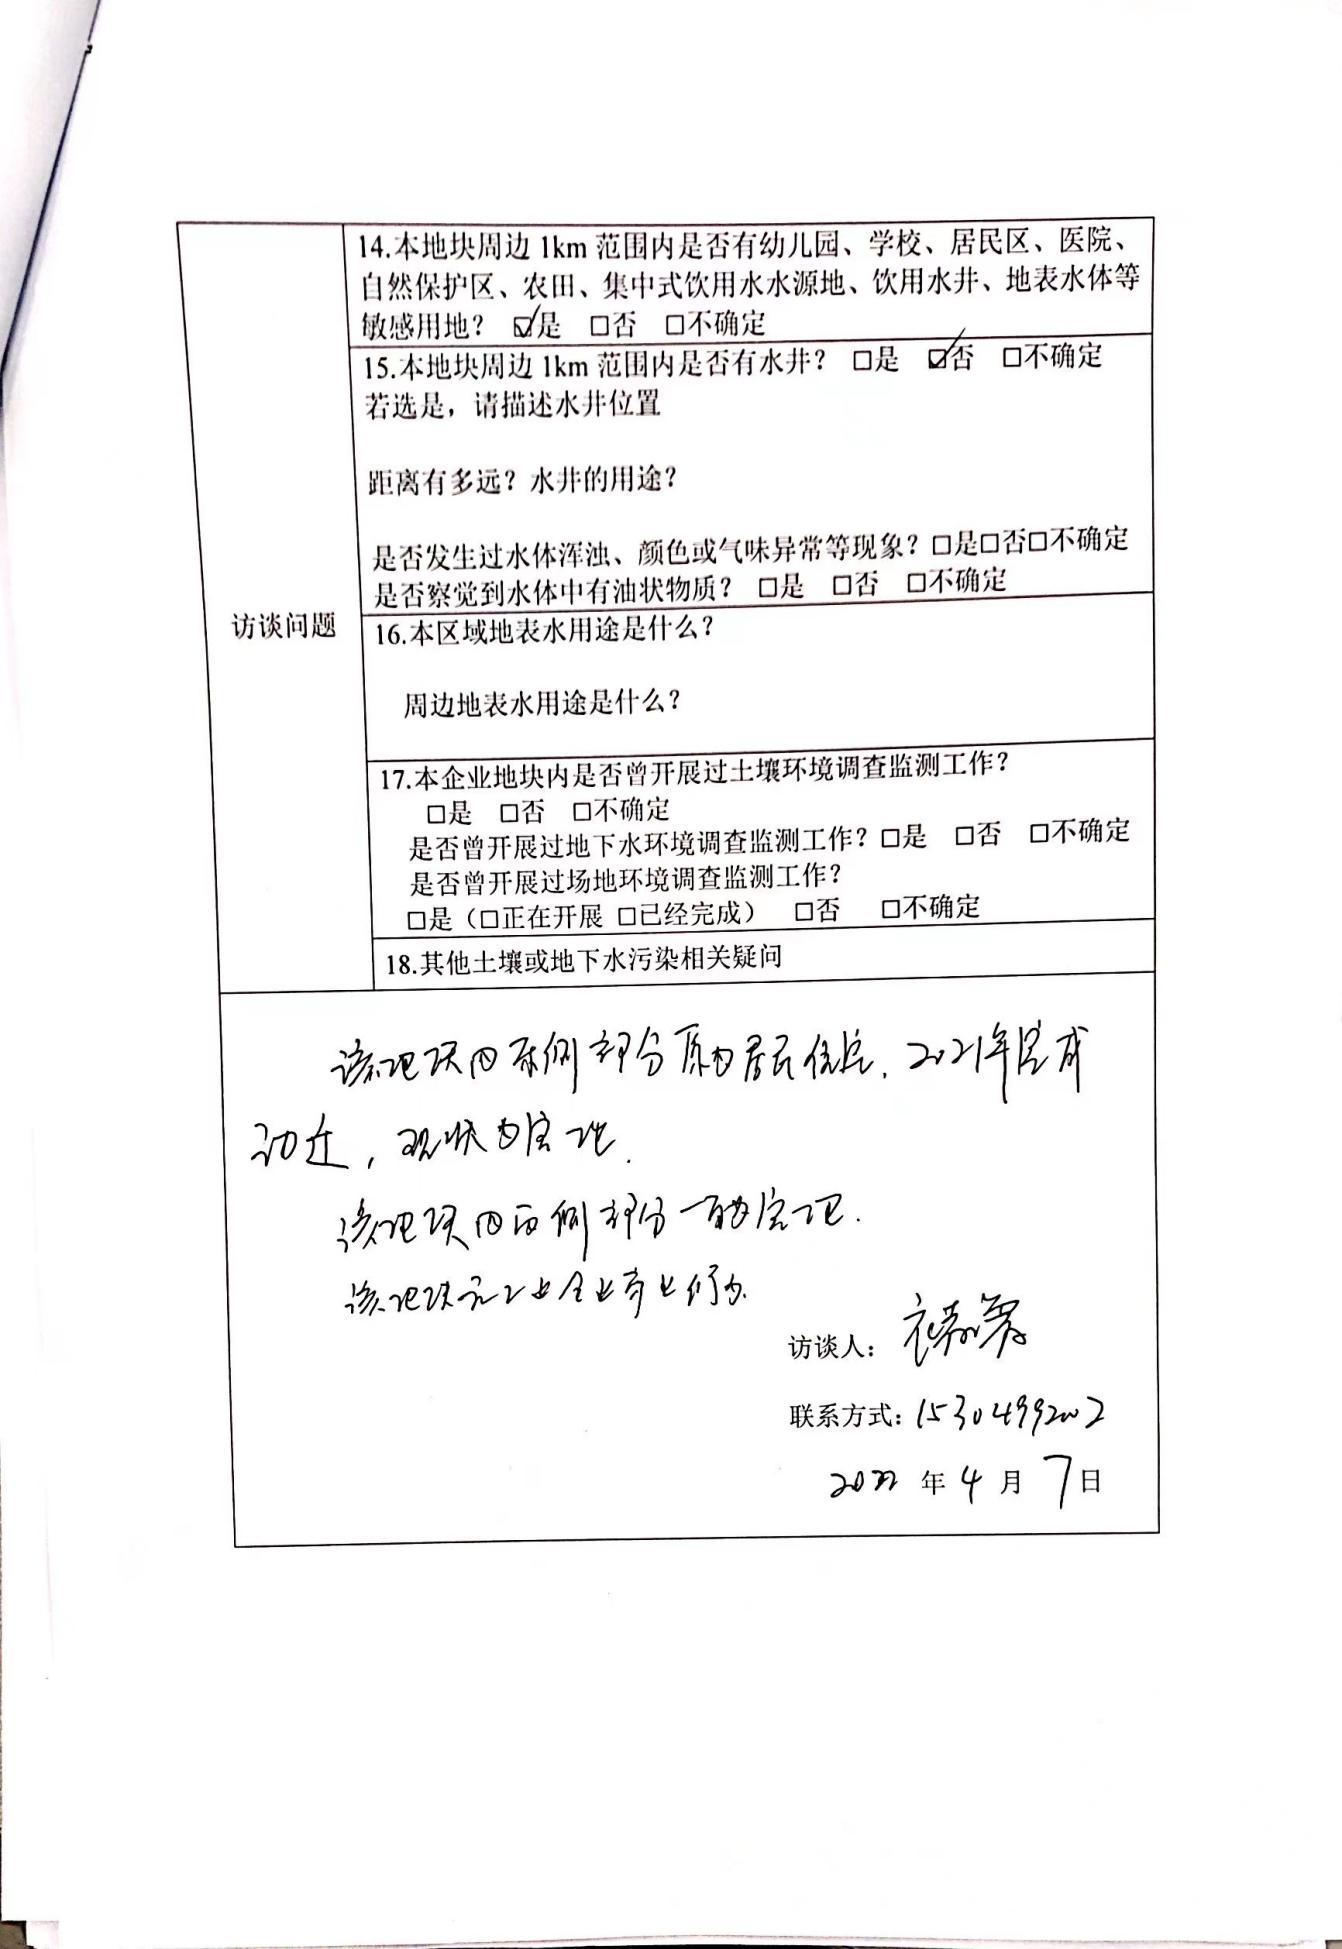 14.本地块周边 1km 范围内是否有幼儿园、学校、居民区、医院、
自然保护区、农田、集中式饮用水水源地、饮用水井、地表水体等
敏感用地? ☑是 □否 □不确定
15.本地块周边 1km 范围内是否有水井? □是 ☑否 □不确定
若选是，请描述水井位置
距离有多远? 水井的用途?
是否发生过水体浑浊、颜色或气味异常等现象? □是□否□不确定
是否察觉到水体中有油状物质? □是 □否 □不确定
访谈问题
16.本区域地表水用途是什么?
周边地表水用途是什么?
17.本企业地块内是否曾开展过土壤环境调查监测工作?
□是 □否 □不确定
是否曾开展过地下水环境调查监测工作? □是 □否 □不确定
是否曾开展过场地环境调查监测工作?
□是（□正在开展 □已经完成） □否 □不确定
18.其他土壤或地下水污染相关疑问
该地块内东侧部分原为居民住宅，2021年完成
动迁，现状为空地.
该地块内西侧部分一直为空地.
该地块无工业企业
访谈人:
联系方式: 15304992002
2022 年 4 月 7 日